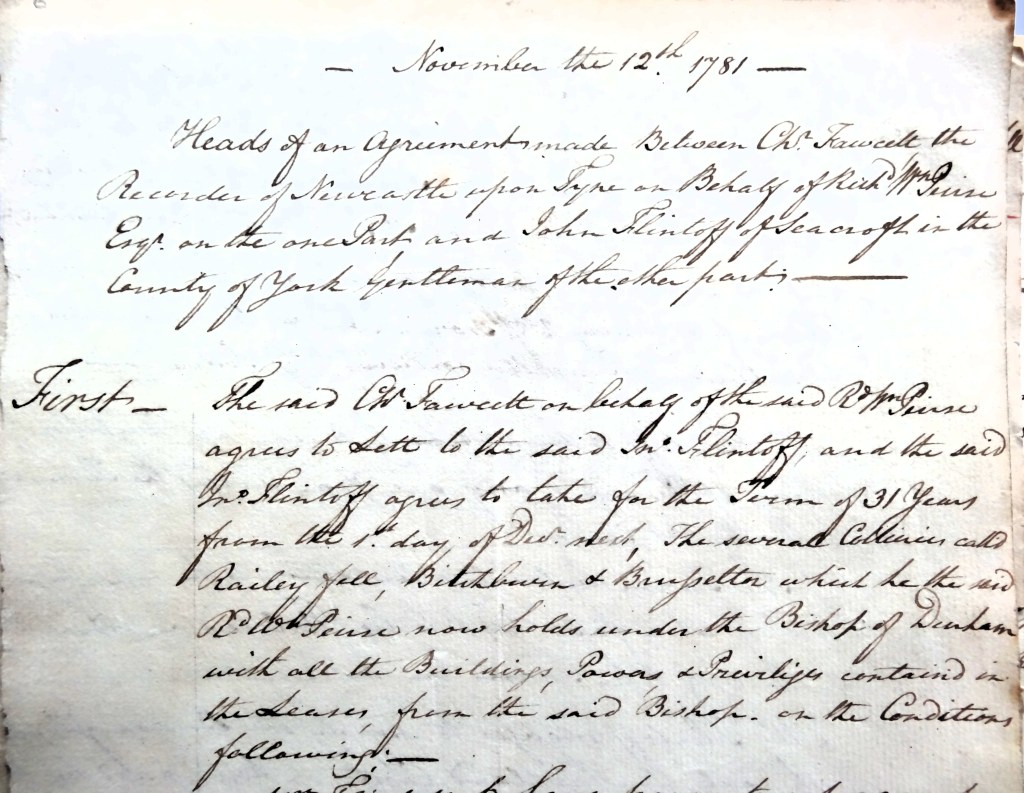 — November the 12th 1781 —
Heads of an Agreement made Between Chr. Fawcett the
Recorder of Newcastle upon Tyne on Behalf of Richd Wm Peirse
Esqr. on the one Part, and John Flintoff of Seacroft in the
County of York Gentleman of the other part; —
First — The said Chr. Fawcett on behalf of the said Rd Wm Peirse
agrees to Lett to the said Jno. Flintoff, and the said
Jno. Flintoff agrees to take for the Term of 31 Years
from the 1st. day of Decr. next, The several Collieries calld
Railey fell, Bitchburn & Brusselton which he the said
Rd Wm Peirse now holds under the Bishop of Durham
with all the Buildings, Powers, & Priviliges containd in
the Leases, from the said Bishop. on the Conditions
following; —